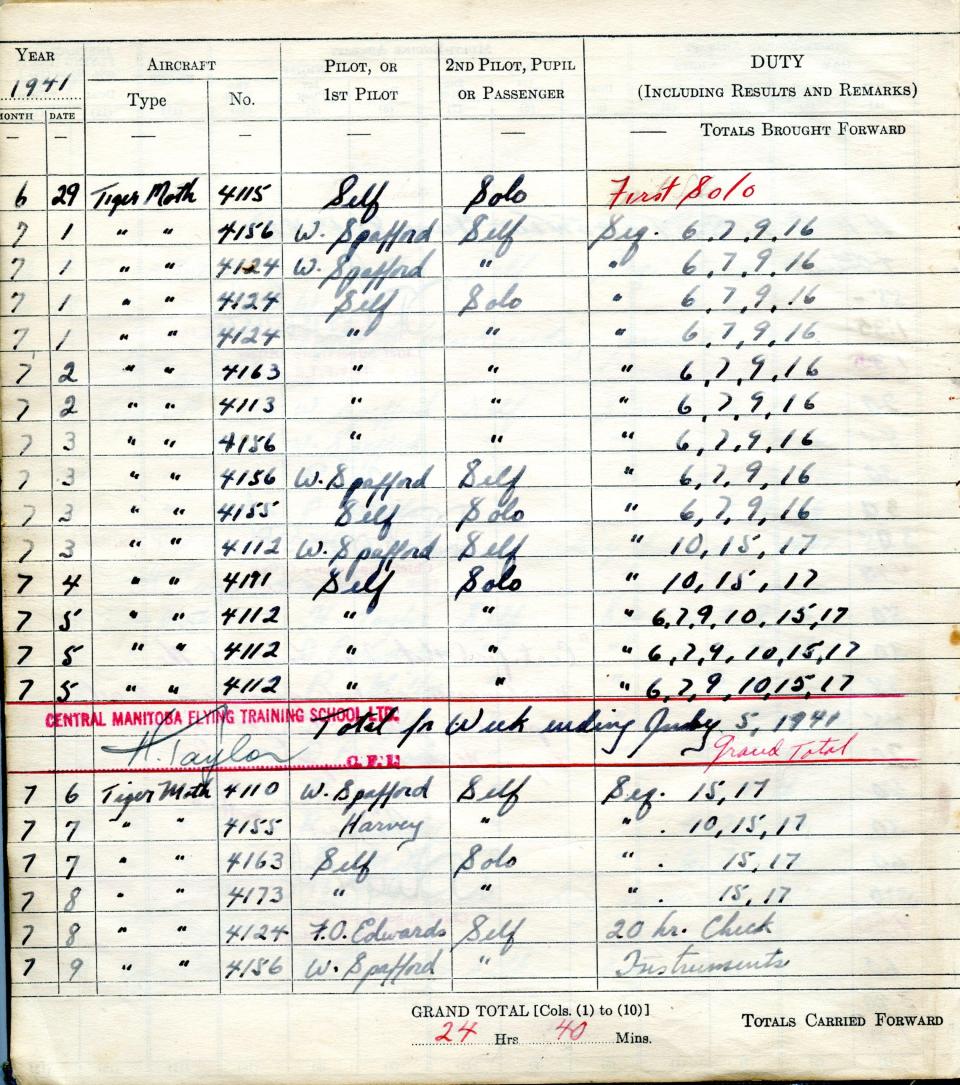 YEAR AIRCRAFT PILOT, OR 2ND PILOT, PUPIL DUTY
1941 Type No. 1ST PILOT OR PASSENGER (INCLUDING RESULTS AND REMARKS)
MONTH DATE
— — — — — — — TOTALS BROUGHT FORWARD
6 29 Tiger Moth 4115 Self Solo First Solo
7 1 " " 4156 W. Spafford Self Seq. 6,7,9,16
7 1 " " 4124 W. Spafford " " 6,7,9,16
7 1 " " 4124 Self Solo " 6,7,9,16
7 1 " " 4124 " " " 6,7,9,16
7 2 " " 4163 " " " 6,7,9,16
7 2 " " 4113 " " " 6,7,9,16
7 3 " " 4156 " " " 6,7,9,16
7 3 " " 4156 W. Spafford Self " 6,7,9,16
7 3 " " 4155 Self Solo " 6,7,9,16
7 3 " " 4112 W. Spafford Self " 10,15,17
7 4 " " 4191 Self Solo " 10,15,17
7 5 " " 4112 " " " 6,7,9,10,15,17
7 5 " " 4112 " " " 6,7,9,10,15,17
7 5 " " 4112 " " " 6,7,9,10,15,17
CENTRAL MANITOBA FLYING TRAINING SCHOOL LTD. Total for Week ending July 5, 1941
H. Taylor C.F.I. Grand Total
7 6 Tiger Moth 4110 W. Spafford Self Seq. 15,17
7 7 " " 4155 Harvey " " . 10,15,17
7 7 " " 4163 Self Solo " . 15,17
7 8 " " 4173 " " " . 15,17
7 8 " " 4124 F.O. Edwards Self 20 hr. Check
7 9 " " 4156 W. Spafford " Instruments
GRAND TOTAL [Cols. (1) to (10)]
24 Hrs 40 Mins. TOTALS CARRIED FORWARD